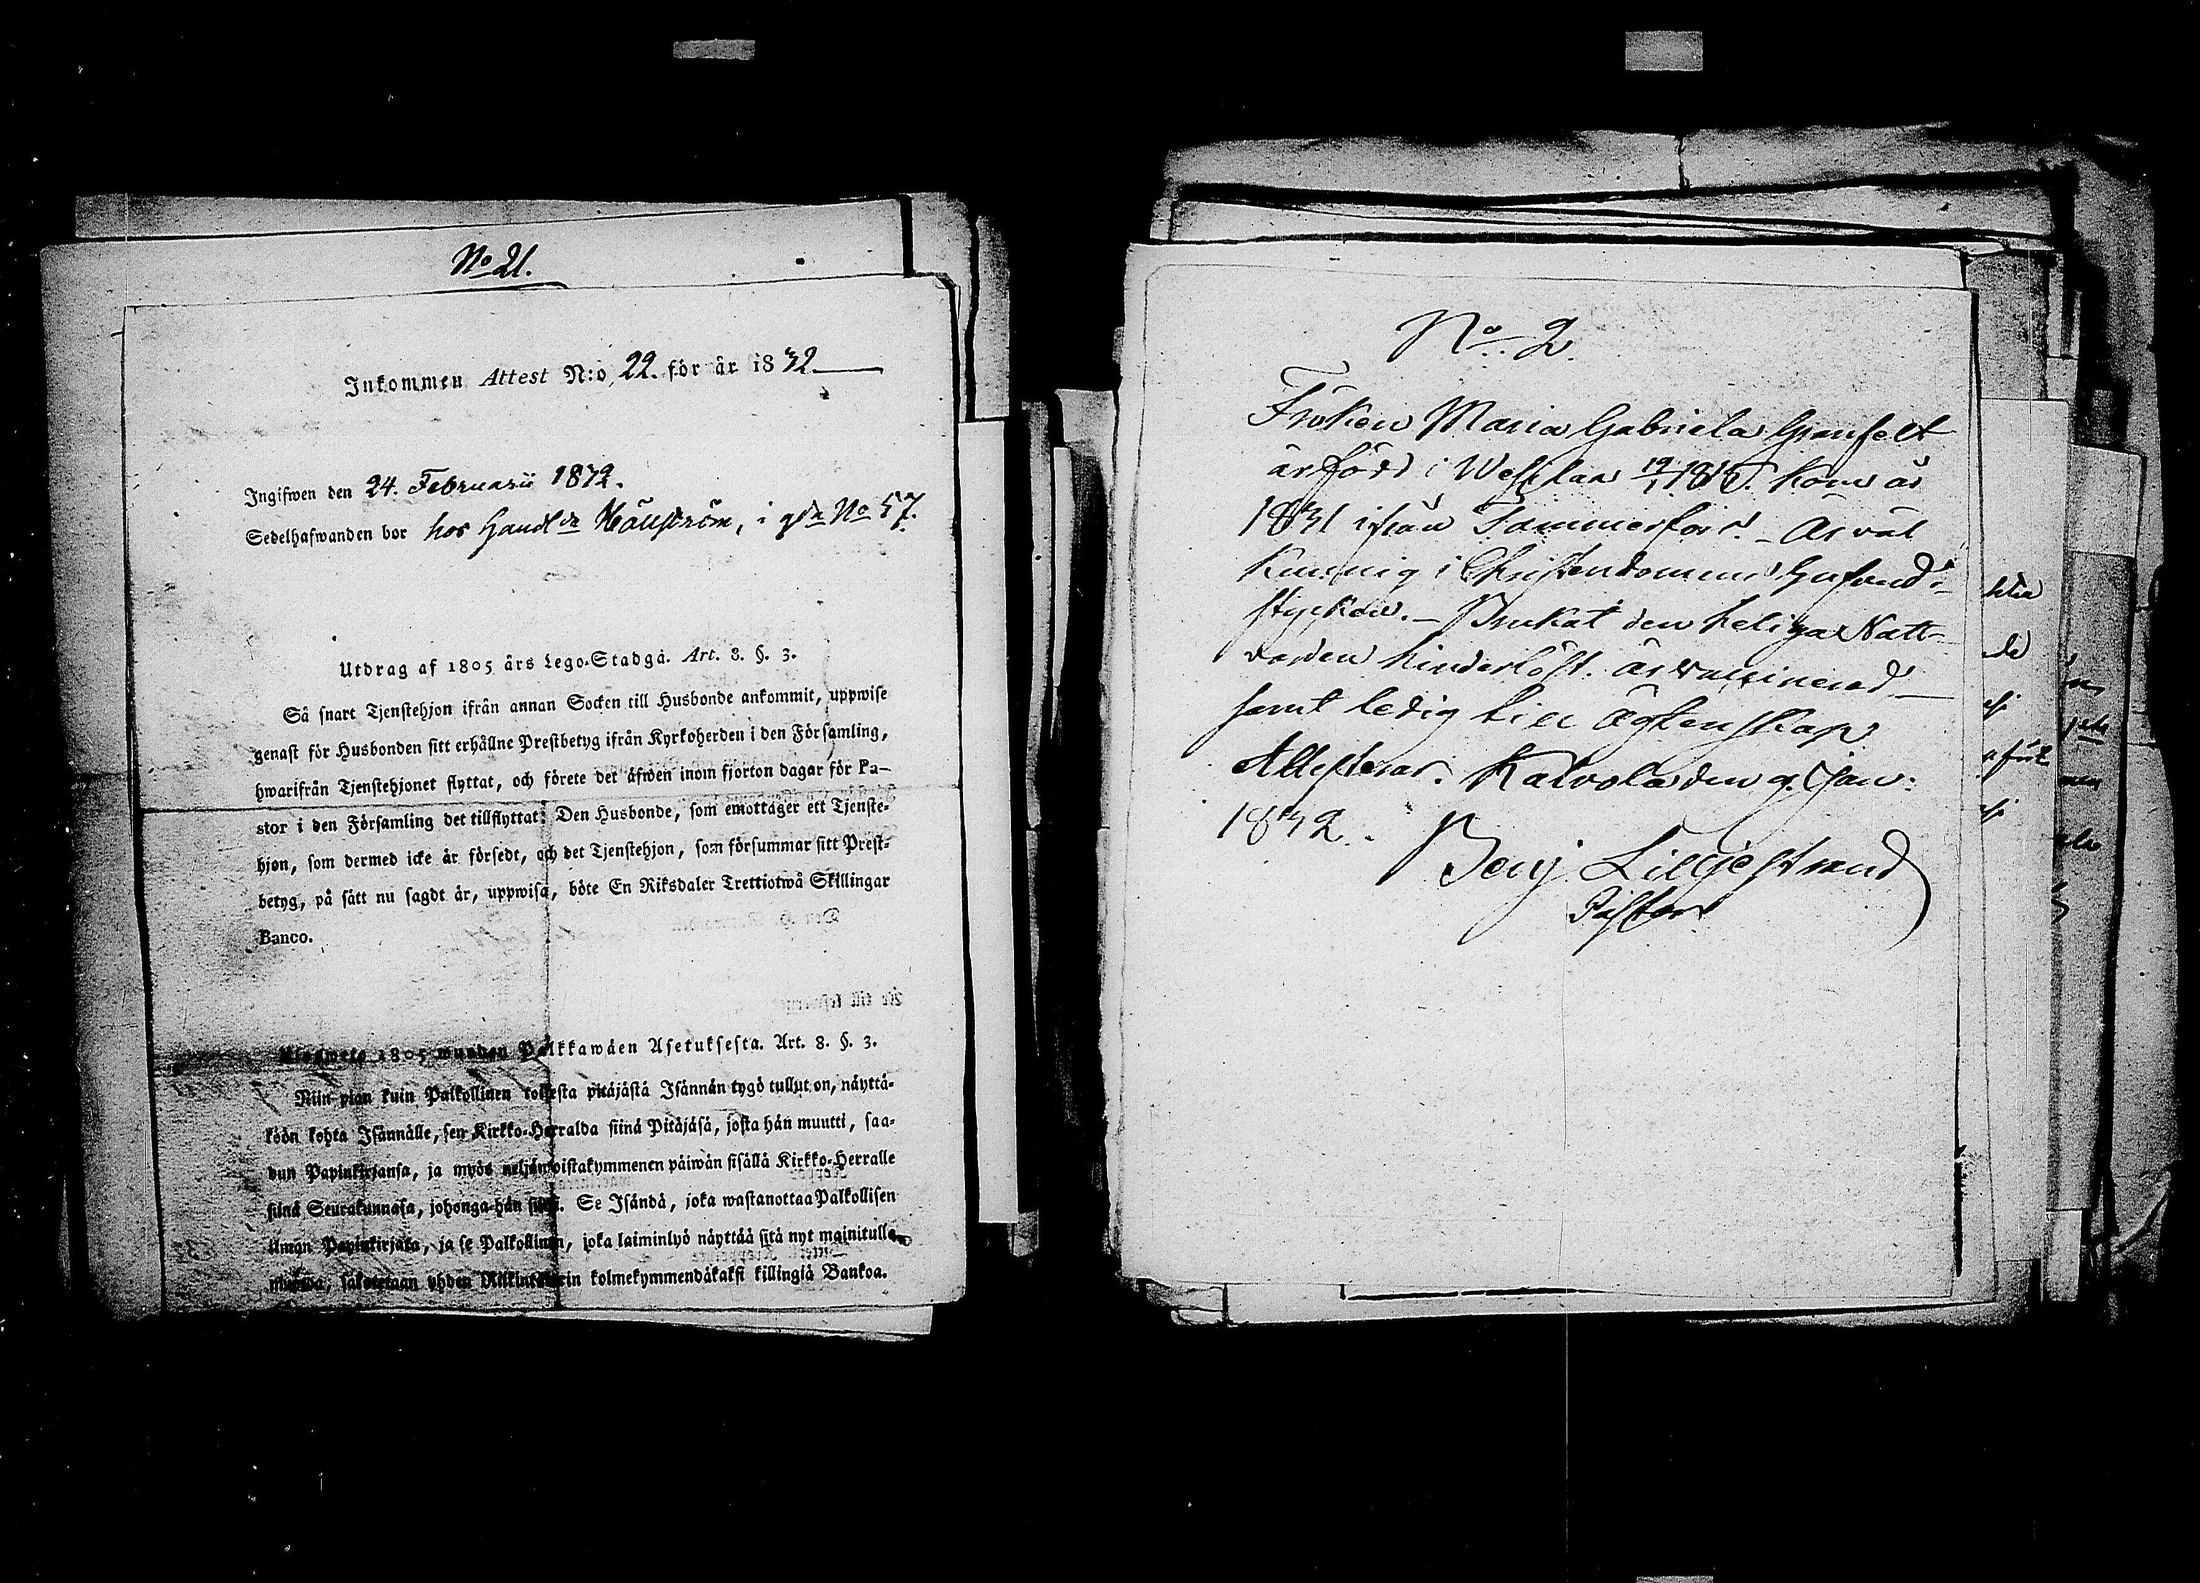 No 21.
Inkommen Attest N:o 22. för år 1832
Ingifwen den 24. Februarii 1832.
Sedelhafwanden bor hos Handl:dn Hällström, i gdn No 57.
Utdrag af 1805 års Lego-Stadga. Art. 8. §. 3.
Så snart Tjenstehjon ifrån annan Socken till Husbonde ankommit, uppwise
genast för Husbonden sitt erhållne Prestbetyg ifrån Kyrkoherden i den Församling,
hwarifrån Tjenstehjonet flyttat, och förete det äfwen inom fjorton dagar för Pa-
stor i den Församling det tillflyttat: Den Husbonde, som emottager ett Tjenste-
hjon, som dermed icke är försedt, och det Tjenstehjon, som försummar sitt Prest-
betyg, på sätt nu sagdt är, uppwisa, böte En Riksdaler Trettiotwå Skillingar
Banco.
1805 wuoden Palkkawäen Asetuksesta. Art. 8. §. 3.
Niin pian kuin Palkollinen toisesta pitäjästä Isännän tygö tullut on, näyttä-
köön kohta Isännälle, sen Kirkko-Herralda siinä Pitäjäsä, josta hän muutti, saa-
dun Papinkirjansa, ja myös neljäntoistakymmenen päiwän sisällä Kirkko-Herralle
siinä Seurakunnasa, johonga hän siirsi. Se Isändä, joka wastanottaa Palkollisen
ilman Papinkirjata, ja se Palkollinen, joka laiminlyö näyttää sitä nyt mainitulla
muotoa, sakotetaan yhden Riikintalarin kolmekymmendäkaksi killingiä Bankoa.
No 2.
Fröken Maria Gabriela Granfelt
är född i Wessilax 19/1 1815. Kom år
1831 ifrån Tammerfors. - Är väl
kunnig i Christendomens Hufvud-
stycken. - Brukat den heliga Natt-
varden hinderlöst. är vaccinerad -
samt ledig till ägtenskap
Attesterar. Kalvola den 9. Jan:
1832.
Benj. Liljestrand
Pastor